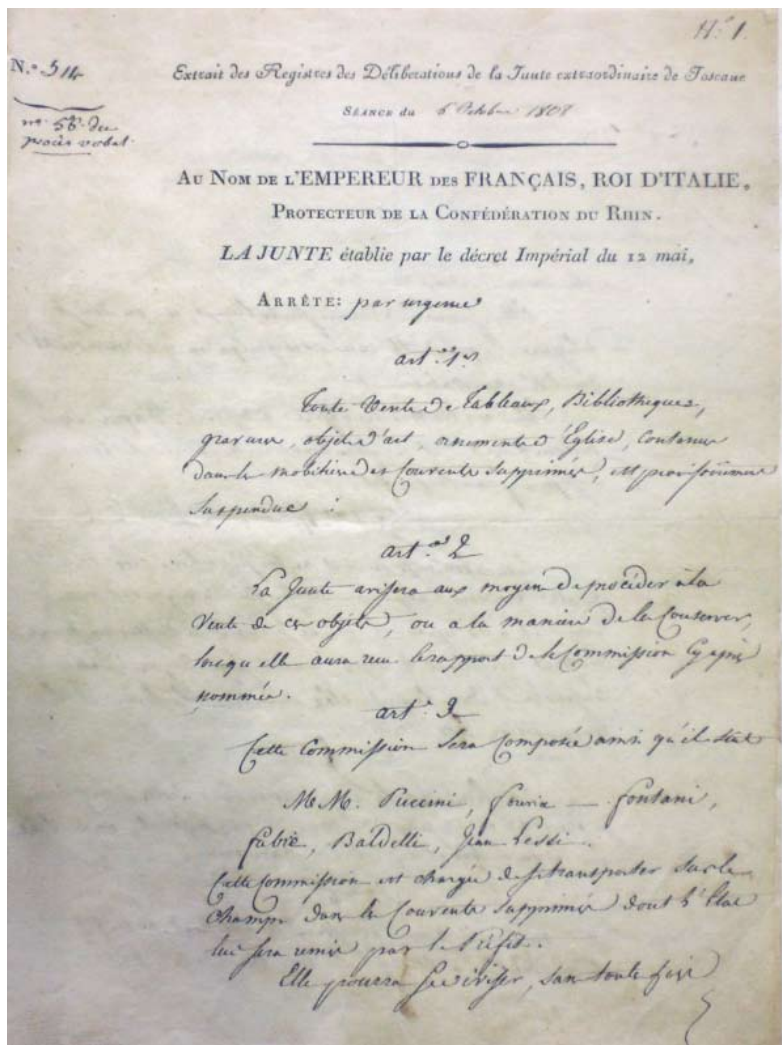 N.º 1.
N.º 514
nº 58. du
procès verbal.
Extrait des Registres des Délibérations de la Junte extraordinaire de Toscane
SÉANCE du 6 Octobre 1808
AU NOM DE L'EMPEREUR DES FRANÇAIS, ROI D'ITALIE,
PROTECTEUR DE LA CONFÉDÉRATION DU RHIN.
LA JUNTE établie par le décret Impérial du 12 mai,
ARRÊTE: par urgence
art.ᵉ 1ᵉʳ
Toute Vente de Tableaux, Bibliotheques,
gravures, objets d'art, ornements d'Église, contenus
dans le mobilier des Couvents Supprimés, est provisoirement
Suspendue.
art.ᵉ 2
La Junte avisera aux moyens de procéder à la
Vente de ces objets, ou a la maniere de les Conserver,
lorsqu'elle aura reçu le rapport de la Commission Cy après
nommée.
art.ᵉ 3
Cette Commission Sera Composée ainsi qu'il suit
M.M. Puccini, — Fontani,
Fabre, Baldelli, Jean Lessi.
Cette Commission est chargée de se transporter Sur le
Champ dans les Couvents Supprimés dont l'État
lui sera remis par le Préfet.
Elle pourra se diviser, sans toute fois